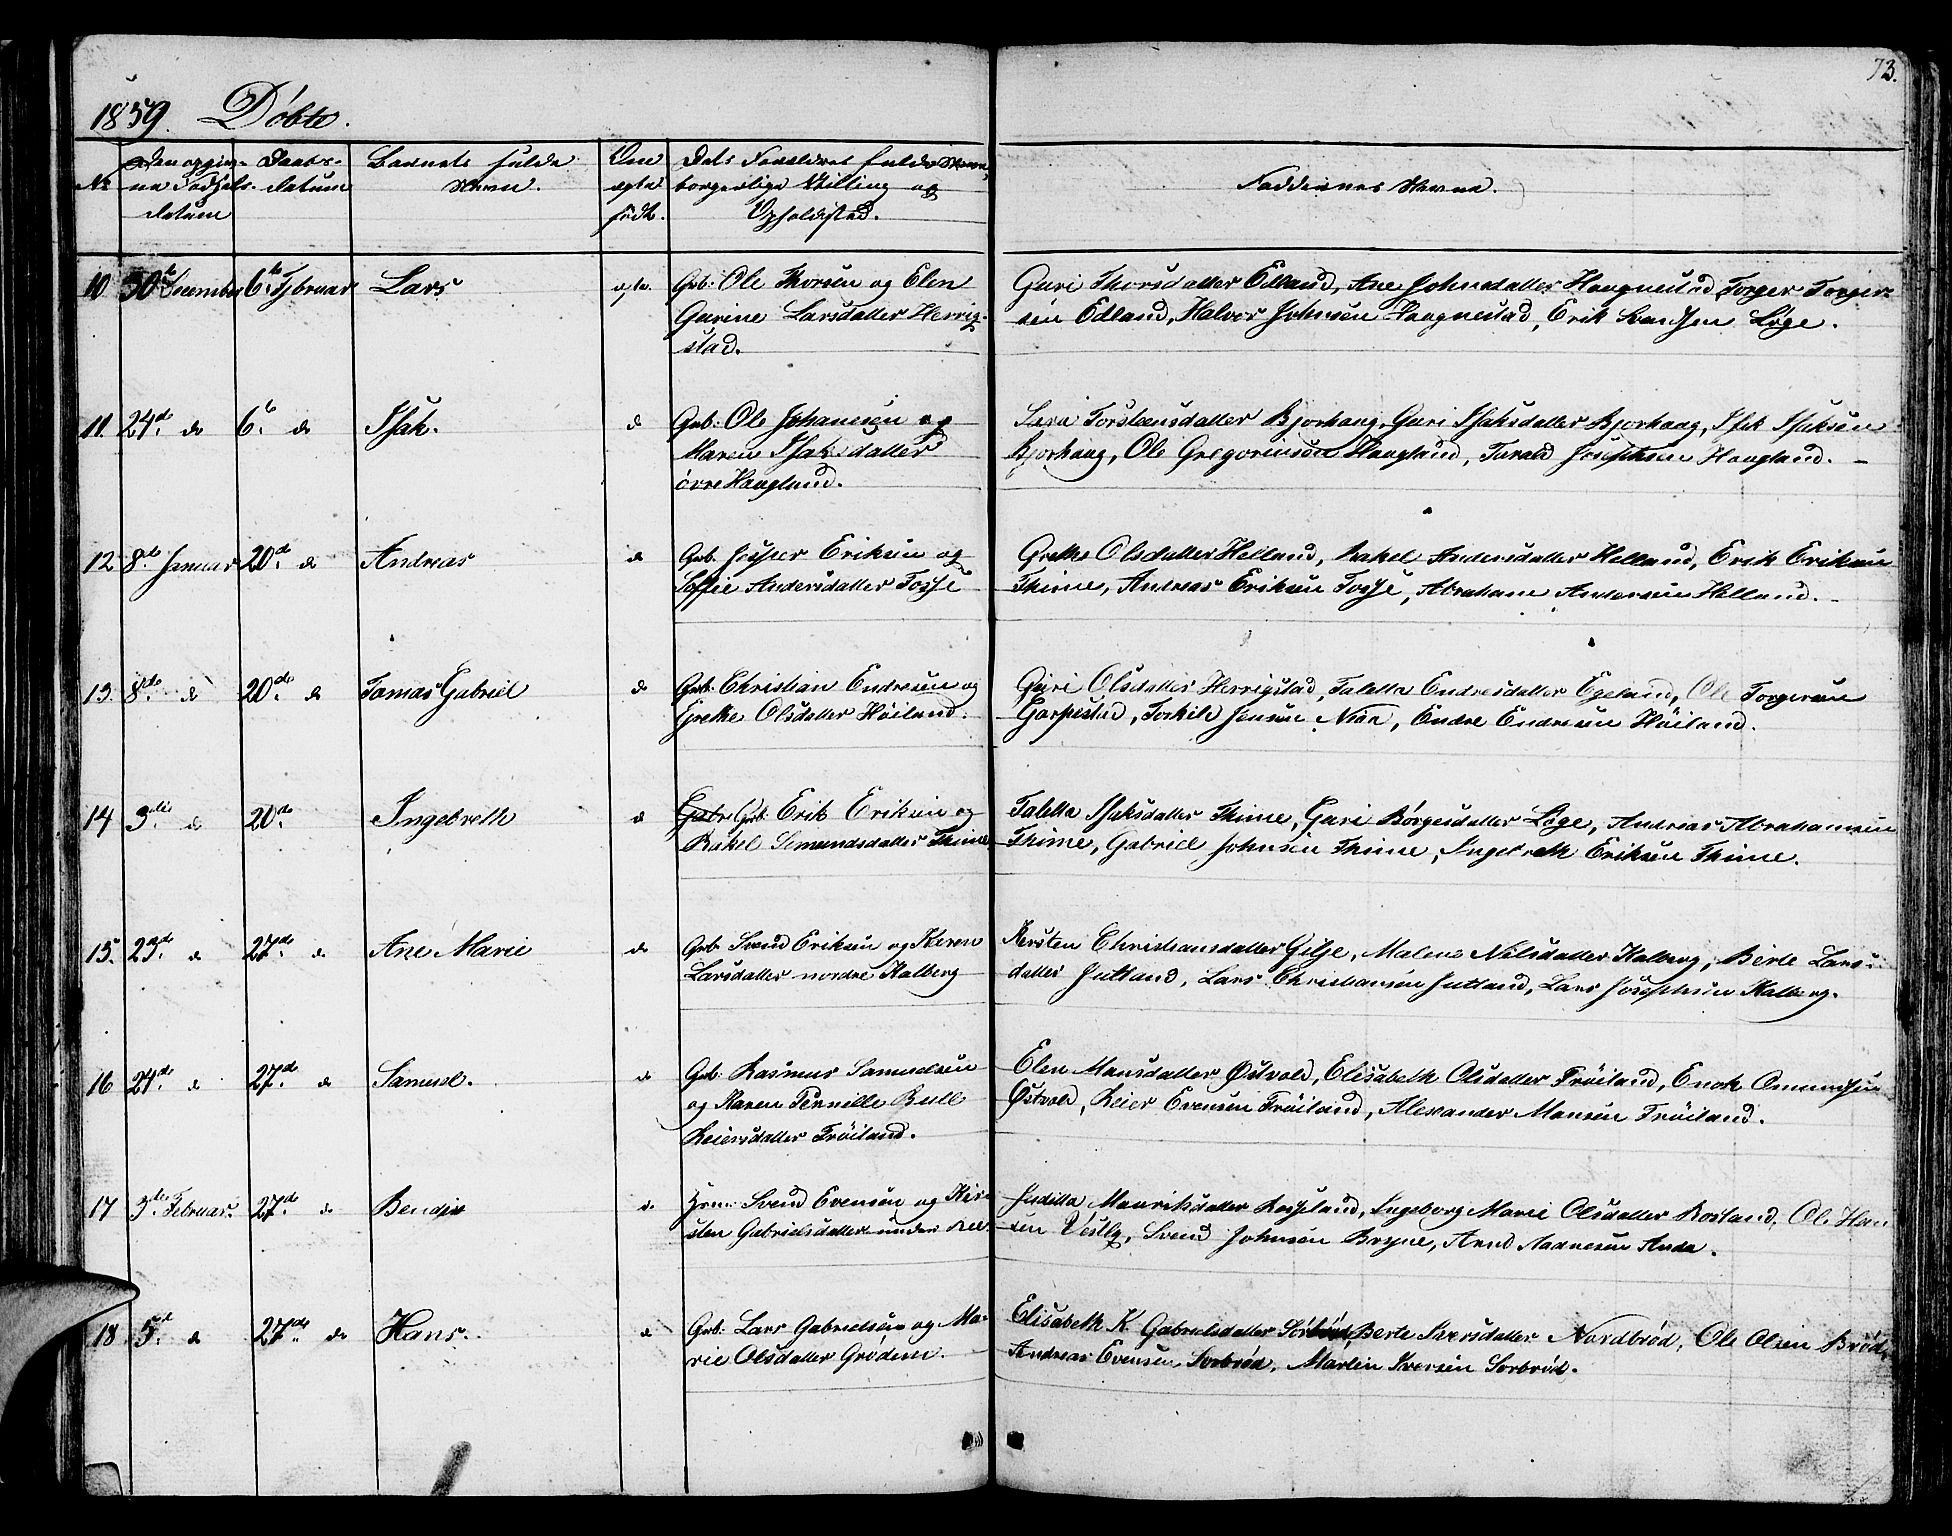 73.
1859. Döbte.
No
Den opgivne Fødselsdatum
Daabsdatum
Barnets fulde Navn.
Om ægte født.
Dets Forældres fulde Navne, borgerlige Stilling og Opholdssted.
Faddernes Navne.
10 30te Decembr 6te Februar Lars ægte.
Grb: Ole Thorsen og Elen
Gurine Larsdatter Herrig-
stad.
Guri Thorsdatter Edland, Ane Johnsdatter Haagnestad, Torger Torger-
sen Edland, Halvor Johnsen Haagnestad, Erik Svendsen Løge.
11. 24d do 6te do Isak. do
Grb: Ole Johansen og
Maren Isaksdatter
övre Haugland.
Torstensdatter Bjorhaug, Guri Isaksdatter Bjorhaug, Isak Isaksen
Bjorhaug, Ole Gregoriusen Haugland, Tarald Josephsen Haugland. –
12. 8de Januar 20de do Andreas do
Grb. Jesper Eriksen og
Soffie Andersdatter Fosse
Grethe Olsdatter Helland, Rakel Andersdatter Helland, Erik Eriksen
Thime, Andreas Eriksen Fosse, Abraham Andersen Helland. –
13. 8de do 20de do Tomas Gabriel do
Grb. Christian Endresen og
Grethe Olsdatter Höiland.
Guri Olsdatter Herrigstad, Taletta Endresdatter Egeland, Ole Torgersen
Garpestad, Torkild Jensen Niae, Endre Endresen Höiland.
14 3die do 20de Ingebreth do
Grb: Erik Eriksen og
Rakel Semundsdatter Thime
Taletta Isaksdatter Thime, Guri Börgesdatter Løge, Andreas Abrahamsen
Thime, Gabriel Johnsen Thime, Ingebreth Eriksen Thime.
15. 23de do 27de do Ane Marie do
Grb. Svend Eriksen og Karen
Larsdatter nordre Kalberg
Kersten Christiansdatter Gilje, Malene Nilsdatter Kalberg, Berte Lars-
datter Jutland, Lars Christiansen Jutland, Lars Josephsen Kalberg.
16 24de do 27de do Samuel. do
Grb: Rasmus Samuelsen
og Karen Pernille Bull
Reiersdatter Fröiland.
Elen Monsdatter Østvold, Elisabeth Olsdatter Fröiland, Enok Omundsen
Østvold, Reier Evensen Fröiland, Alexander Monsen Fröiland.
17 3die Februar. 27de do Bendix do
Svend Evensen og Kir-
sten Gabrielsdatter under
Juditta Mauritsdatter Rosseland, Ingeborg Marie Olsdatter Rosland, Ole Han
sen Vestly, Svend Johnsen Bryne, Arnd Aadnesen Anda.
18 5te do 27de do Hans. do
Grb: Lars Gabrielsen og Ma-
rie Olsdatter Grödem.
Elisabeth K Gabrielsdatter Sörbröd, Berte Iversdatter Nordbrød, Ole Olsen Bröd,
Andreas Evensen Sorbrød, Martin Iversen Sorbrød.